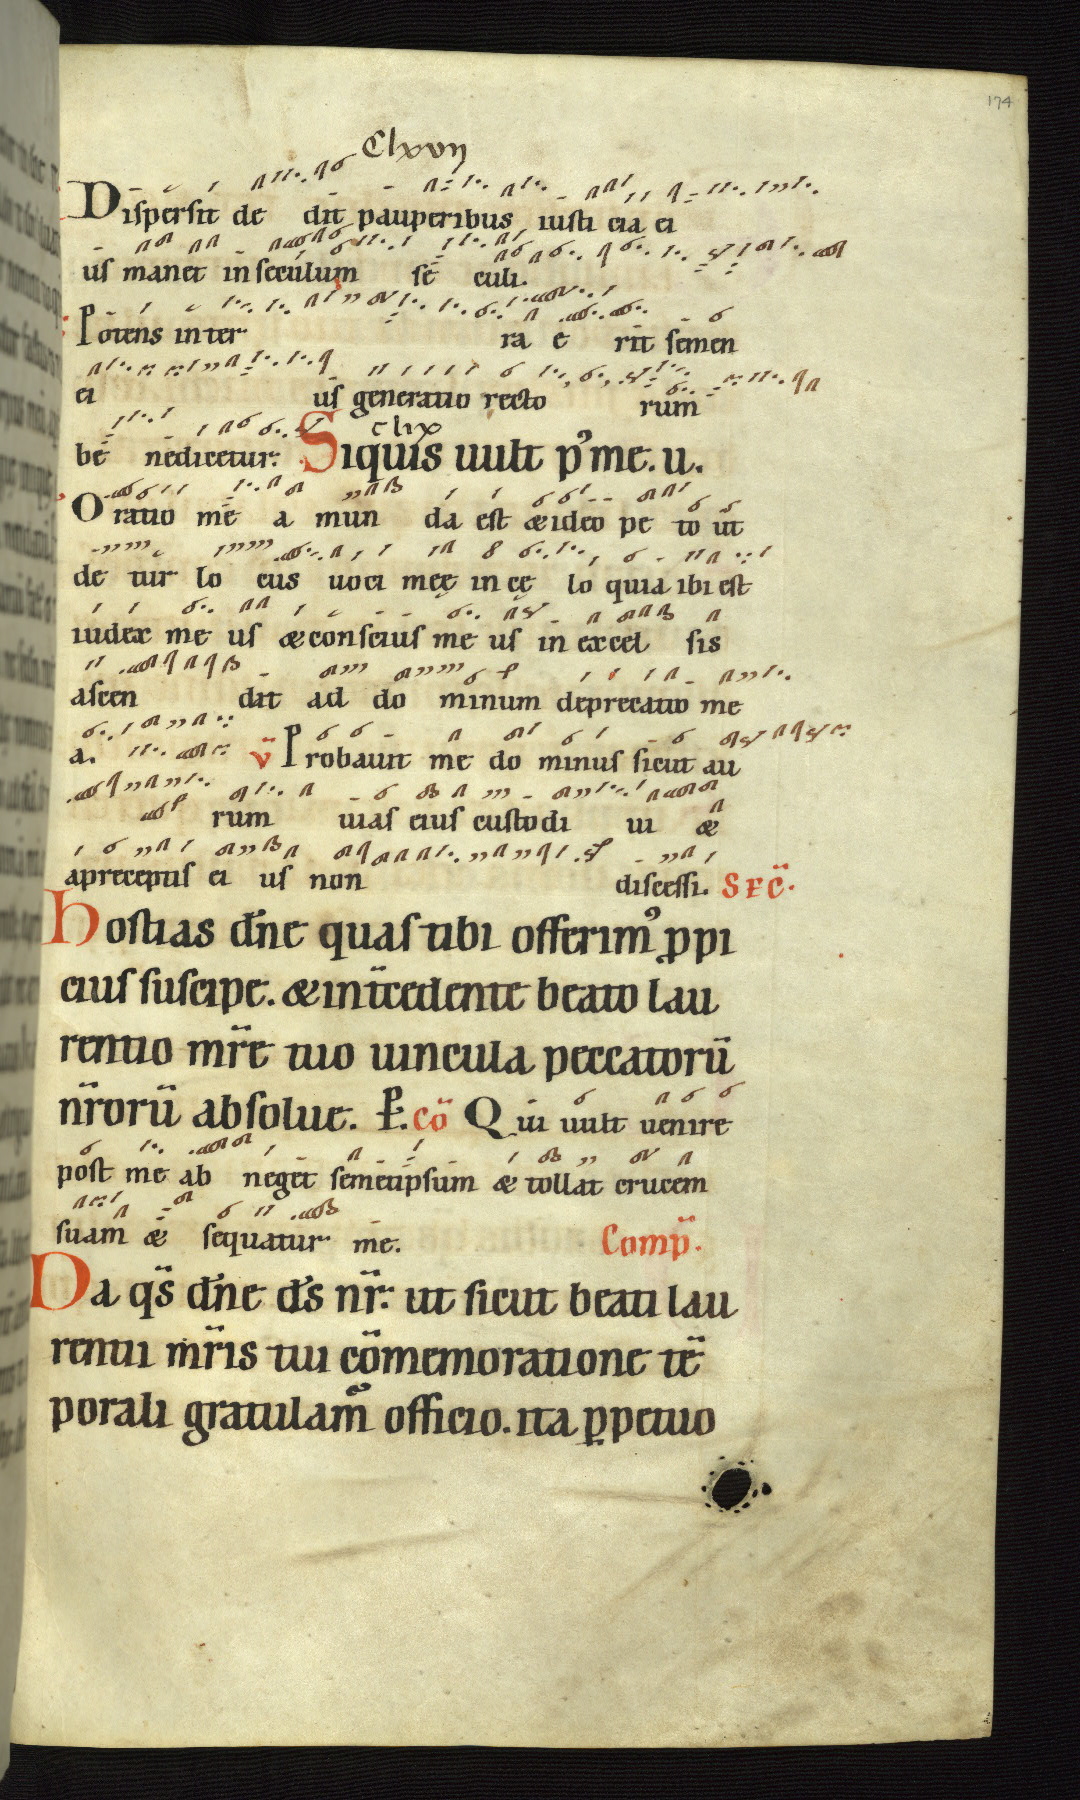 174
Clxvij
Dispersit de dit pauperibus iusti cia ei
us manet in seculum se culi.
Potens in ter ra e rit semen
ei us generatio recto rum
be nedicetur. clix Siquis uult p'me. u.
Oratio me a mun da est & ideo pe to ut
de tur lo cus uoci meę in cę lo quia ibi est
iudex me us & conscius me us in excel sis
ascen dit ad do minum deprecatio me
a. v̈ Probauit me do minus sicut au
rum uias eius custodi ui &
apreceptis ei us non discessi. SEC̈.
hostias dn̄e quas tibi offerim' ꝓpi
cius suscipe. & int̄cedente beato lau
rentio mr̄e tuo uincula peccatorū
nr̄orū absolue. P̵. cō Qui uult uenire
post me ab neget semetipsum & tollat crucem
suam & sequatur me. Comp̄.
Da qs̄ dn̄e ds̄ nr̄: ut sicut beati lau
rentii mr̄is tui cōmemoratione tē
porali gratulam' officio. ita ꝑpetuo